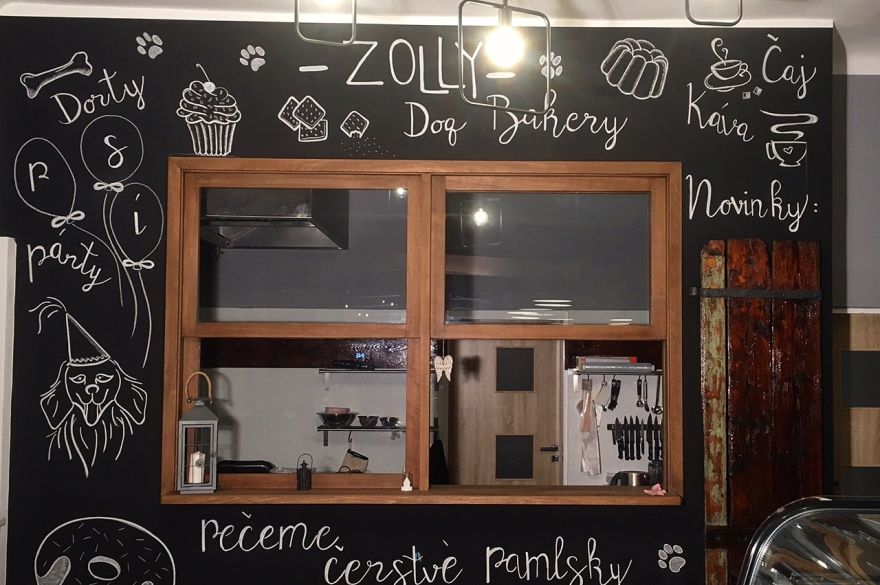 - ZOLLY -
Dog Bakery
Dorty
Psí
párty
Čaj
Káva
Novinky:
pečeme
čerstvè pamlsky